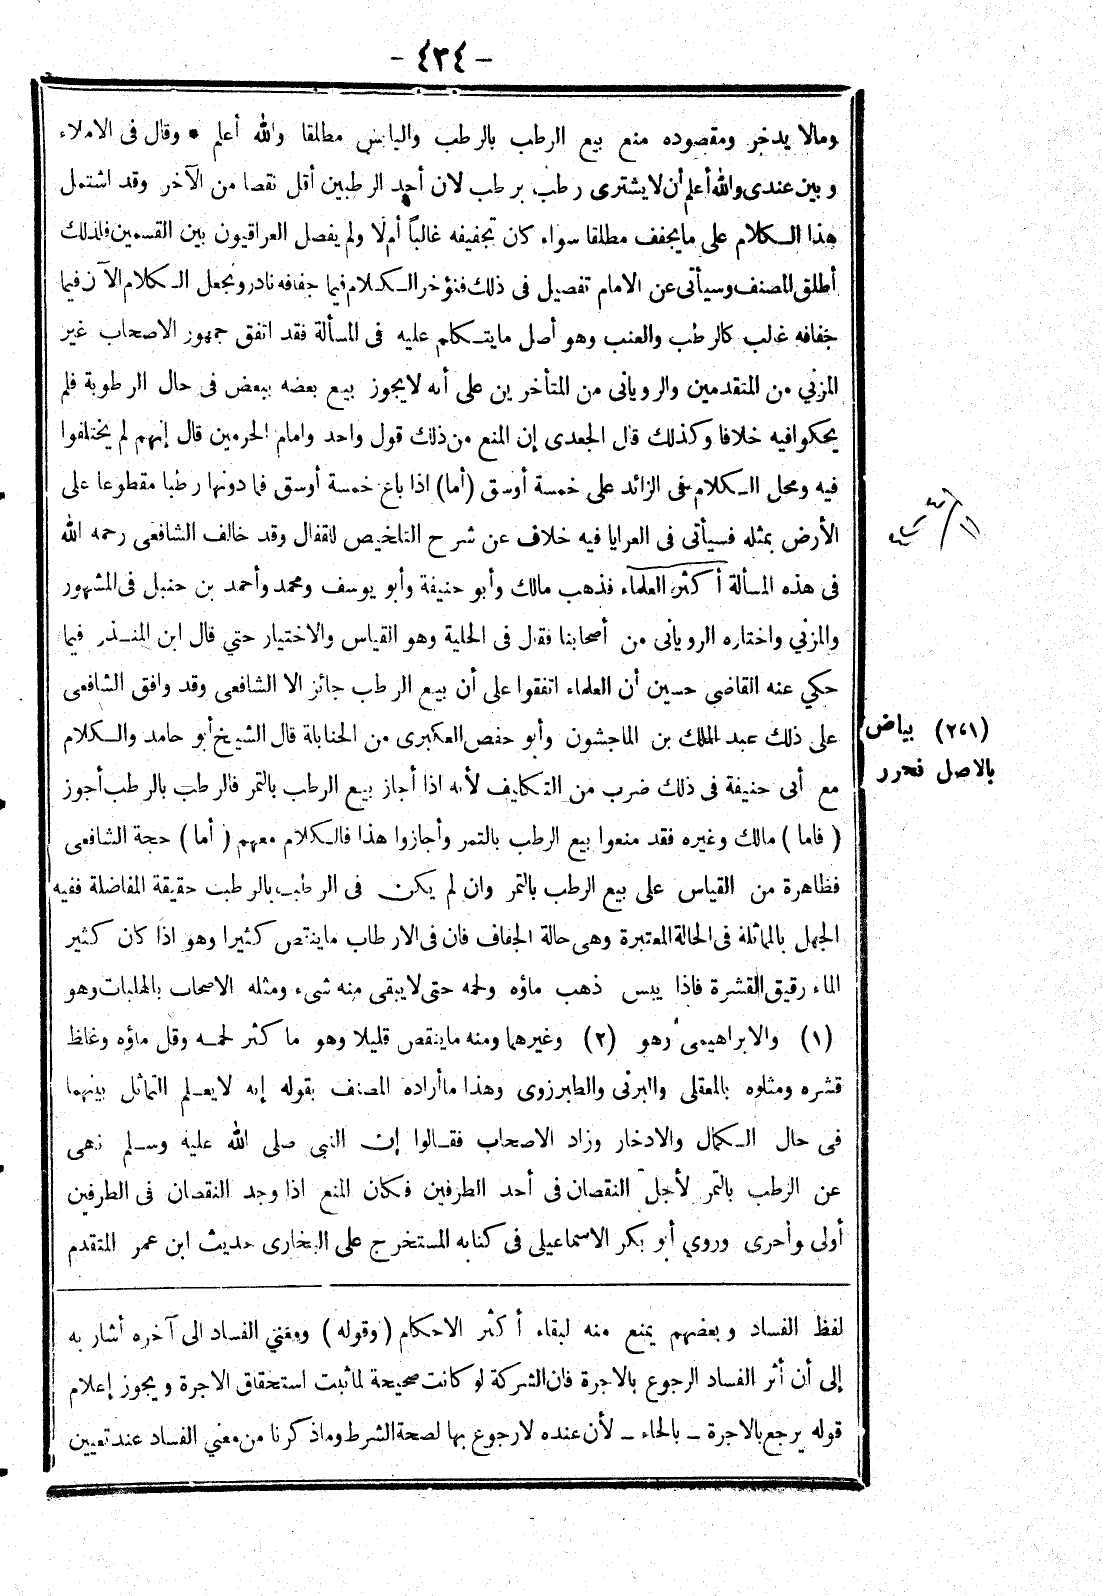 - ٤٣٤ -
ومالا يدخر ومقصوده منع بيع الرطب بالرطب واليابس مطلقا والله أعلم * وقال فى الاملاء
وبين عندى والله أعلم أن لا يشترى رطب برطب لان أحد الرطبين أقل نقصا من الآخر وقد اشتمل
هذا الكلام على مايجفف مطلقا سواء كان تجفيفه غالباً أم لا ولم يفصل العراقيون بين القسمين فلذلك
أطلق المصنف وسيأتى عن الامام تفصيل فى ذلك فنؤخر الكلام فيما جفافه نادر ونجعل الكلام الآن فيما
جفافه غالب كالرطب والعنب وهو أصل مايتكلم عليه فى المسألة فقد اتفق جمهور الاصحاب غير
المزني من المتقدمين والرويانى من المتأخرين على أنه لايجوز بيع بعضه ببعض فى حال الرطوبة فلم
يحكوا فيه خلافا وكذلك قال الجعدى إن المنع من ذلك قول واحد وامام الحرمين قال إنهم لم يختلفوا
فيه ومحل الكلام فى الزائد على خمسة أوسق (أما) اذا باع خمسة أوسق فما دونها رطبا مقطوعا على
الأرض بمثله فسيأتى فى العرايا فيه خلاف عن شرح التلخيص للقفال وقد خالف الشافعى رحمه الله
فى هذه المسألة أكثر العلماء فذهب مالك وأبو حنيفة وأبو يوسف ومحمد وأحمد بن حنبل فى المشهور
والمزني واختاره الرويانى من أصحابنا فقال فى الحلية وهو القياس والاختيار حتي قال ابن المنذر فيما
حكي عنه القاضي حسين أن العلماء اتفقوا على أن بيع الرطب جائز الا الشافعى وقد وافق الشافعى
على ذلك عبد الملك بن الماجشون وأبو حفص العكبرى من الحنابلة قال الشيخ أبو حامد والكلام
مع أبى حنيفة فى ذلك ضرب من التكليف لأنه اذا أجاز بيع الرطب بالتمر فالرطب بالرطب أجوز
( فاما ) مالك وغيره فقد منعوا بيع الرطب بالتمر وأجازوا هذا فالكلام معهم ( أما ) حجة الشافعى
فظاهرة من القياس على بيع الرطب بالتمر وان لم يكن فى الرطب بالرطب حقيقة المفاضلة ففيه
الجهل بالمماثلة فى الحالة المعتبرة وهى حالة الجفاف فان فى الارطاب ماينقص كثيرا وهو اذا كان كثير
الماء رقيق القشرة فاذا يبس ذهب ماؤه ولحمه حتى لايبقى منه شىء ومثله الاصحاب بالهلبات وهو
(١) والابراهيمى وهو (٢) وغيرهما ومنه ماينقص قليلا وهو ما كثر لحمه وقل ماؤه وغلظ
قشره ومثلوه بالمعقلى والبرنى والطبرزوى وهذا ماأراده المصنف بقوله إنه لايعلم التماثل بينهما
فى حال الكمال والادخار وزاد الاصحاب فقالوا إن النبي صلى الله عليه وسلم نهى
عن الرطب بالتمر لأجل النقصان فى أحد الطرفين فكان المنع اذا وجد النقصان فى الطرفين
أولى وأحرى وروي أبو بكر الاسماعيلى فى كتابه المستخرج على البخارى حديث ابن عمر المتقدم
(٢،١) بياض
بالاصل فحرر
لفظ الفساد وبعضهم يمنع منه لبقاء أكثر الاحكام ( وقوله ) ومعني الفساد الى آخره أشار به
إلى أن أثر الفساد الرجوع بالاجرة فان الشركة لو كانت صحيحة لما ثبت استحقاق الاجرة ويجوز إعلام
قوله يرجع بالاجرة ـ بالحاء ـ لأن عنده لارجوع بها لصحة الشرط وماذكرنا من معني الفساد عند تعيين